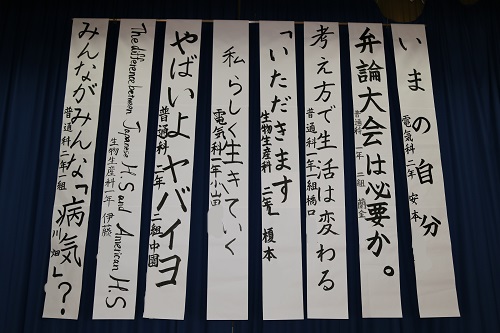 いまの自分
電気科二年 安本
弁論大会は必要か。
普通科一年 二組 蘭金
考え方で生活は変わる
普通科一年一組橋口
「いただきます」
生物生産科 二年 榎本
私らしく生きていく
電気科一年小山田
やばいよヤバイヨ
普通科一年 二組中園
The difference between Japanese H.S and American H.S
生物生産科一年 伊藤
みんながみんな「病気」？
普通科一年一組 川畑